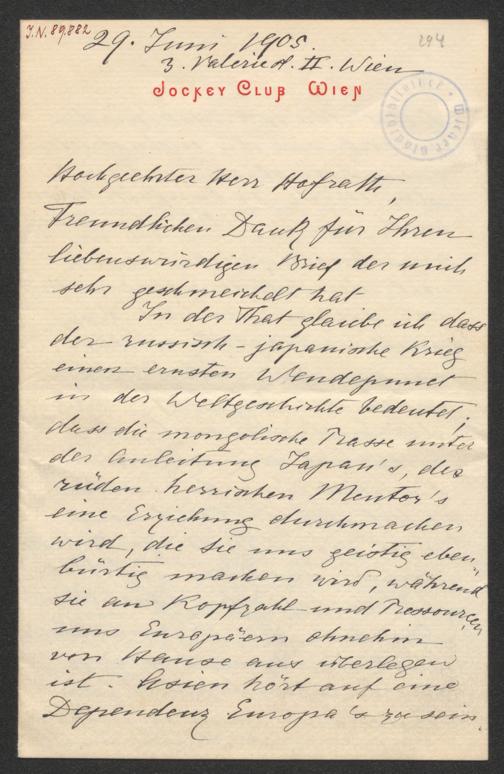 J.N. 89.882
29. Juni 1905.
294
3. Valeriestr. II. Wien
JOCKEY CLUB WIEN
Wiener Stadtbibliothek
Hochgeehrter Herr Hofrath,
Freundlichen Dank für Ihren
liebenswürdigen Brief der mich
sehr geschmeichelt hat
In der That glaube ich dass
der russisch-japanische Krieg
einen ernsten Wendepunct
in der Weltgeschichte bedeutet;
dass die mongolische Rasse unter
der Anleitung Japan's, des
rüden herrischen Mentor's
eine Erziehung durchmachen
wird, die sie uns geistig eben-
bürtig machen wird, während
sie an Kopfzahl und Ressourcen
uns Europäern ohnehin
von Hause aus überlegen
ist. Asien hört auf eine
Dependenz Europa's zu sein.